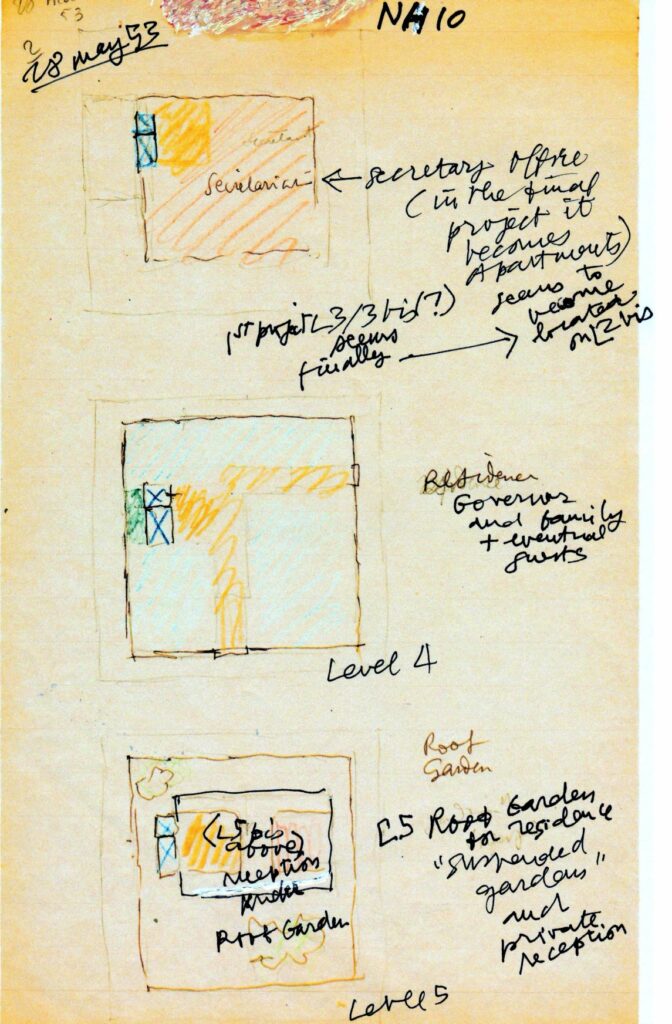 53
NH10
2
28 may 53
Secretariat
← secretary office
(in the final
project it
becomes
Apartments)
seems to
become
located
on L2 bis
1st project L3/3 bis (?)
seems
finally
Residence
Governor
and family
+ eventual
guests
Level 4
Roof
Garden
(L5 bis
above)
reception
under
Roof Garden
L5 Roof Garden
for residence
"suspended
gardens"
and
private
reception
Level 5